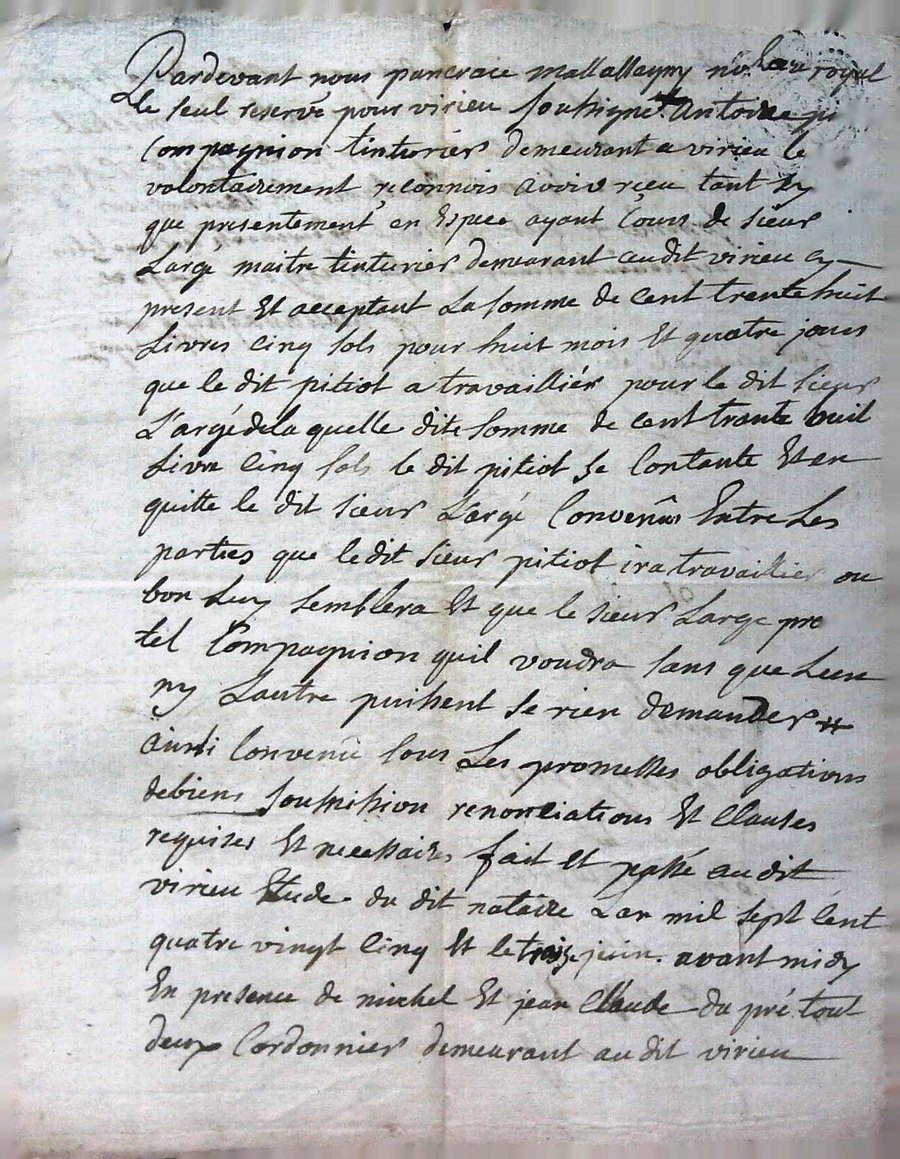 Pardevant nous pancrace mallallayny notaire royal
le seul reservé pour virieu soussigné + antoine pi
Compagnion tinturier demeurant a virieu le
volontairement reconnois avoir reçu tant cy
que presentement en Espece ayant Cours de sieur
Largé maitre tinturier demeurant audit virieu cy
present Et acceptant La somme de cent trente huit
Livres cinq sols pour huit mois Et quatre jours
que le dit pitiot a travaillièr pour le dit sieur
Largé de la quelle dite somme de cent trante huit
Livre Cinq sols le dit pitiot se Contante Et en
quitte le dit sieur Largé Convenûs Entre Les
parties que ledit sieur pitiot ira travaillier ou
bon Luy semblera Et que le sieur Large pre
tel Compagnion quil voudra sans que Lun
ny Lautre puissent se rien demander #
ainsi Convenu sous Les promesses obligations
debiens soussmission renonciations Et Clauses
requises Et necessaires fait et passé audit
virieu Etude du dit notaire Lan mil sept Cent
quatre vingt Cinq Et le treize juin avant midy
En presence de michel Et jean Claude du pré tout
deux Cordonnier demeurant audit virieu